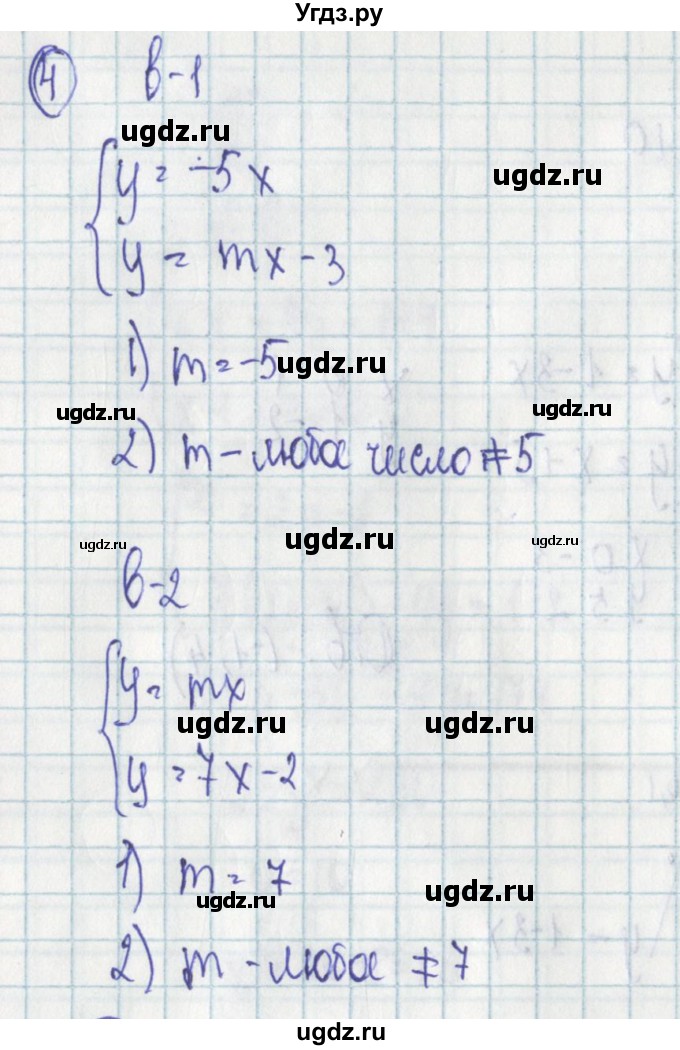 Угдз.ру
4 В-1
ugdz.ru
y = -5x
ugdz.ru
y = mx - 3
1) m = -5
ugdz.ru
ugdz.ru
ugdz.ru
2) m - любое число ≠ 5
ugdz.ru
ugdz.ru
ugdz.ru
В-2
y = mx
ugdz.ru
ugdz.ru
y = 7x - 2
1) m = 7
ugdz.ru
ugdz.ru
2) m - любое ≠ 7
ugdz.ru